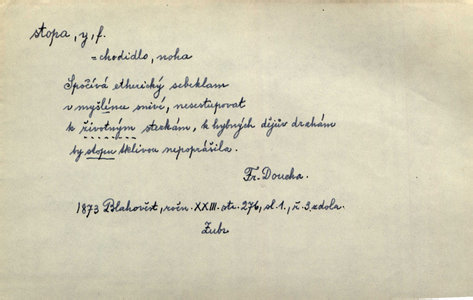 stopa, y, f.
= chodidlo, noha
Spočívá etherický sebeklam
v myšlénce snivé, nesestupovat
k životným stezkám, k hybných dějův drahám
by stopu tklivou nepoprášila.
Fr. Doucha.
1873 Blahověst, ročn. XXIII. str. 276, sl. 1., ř. 3. zdola.
Zubr